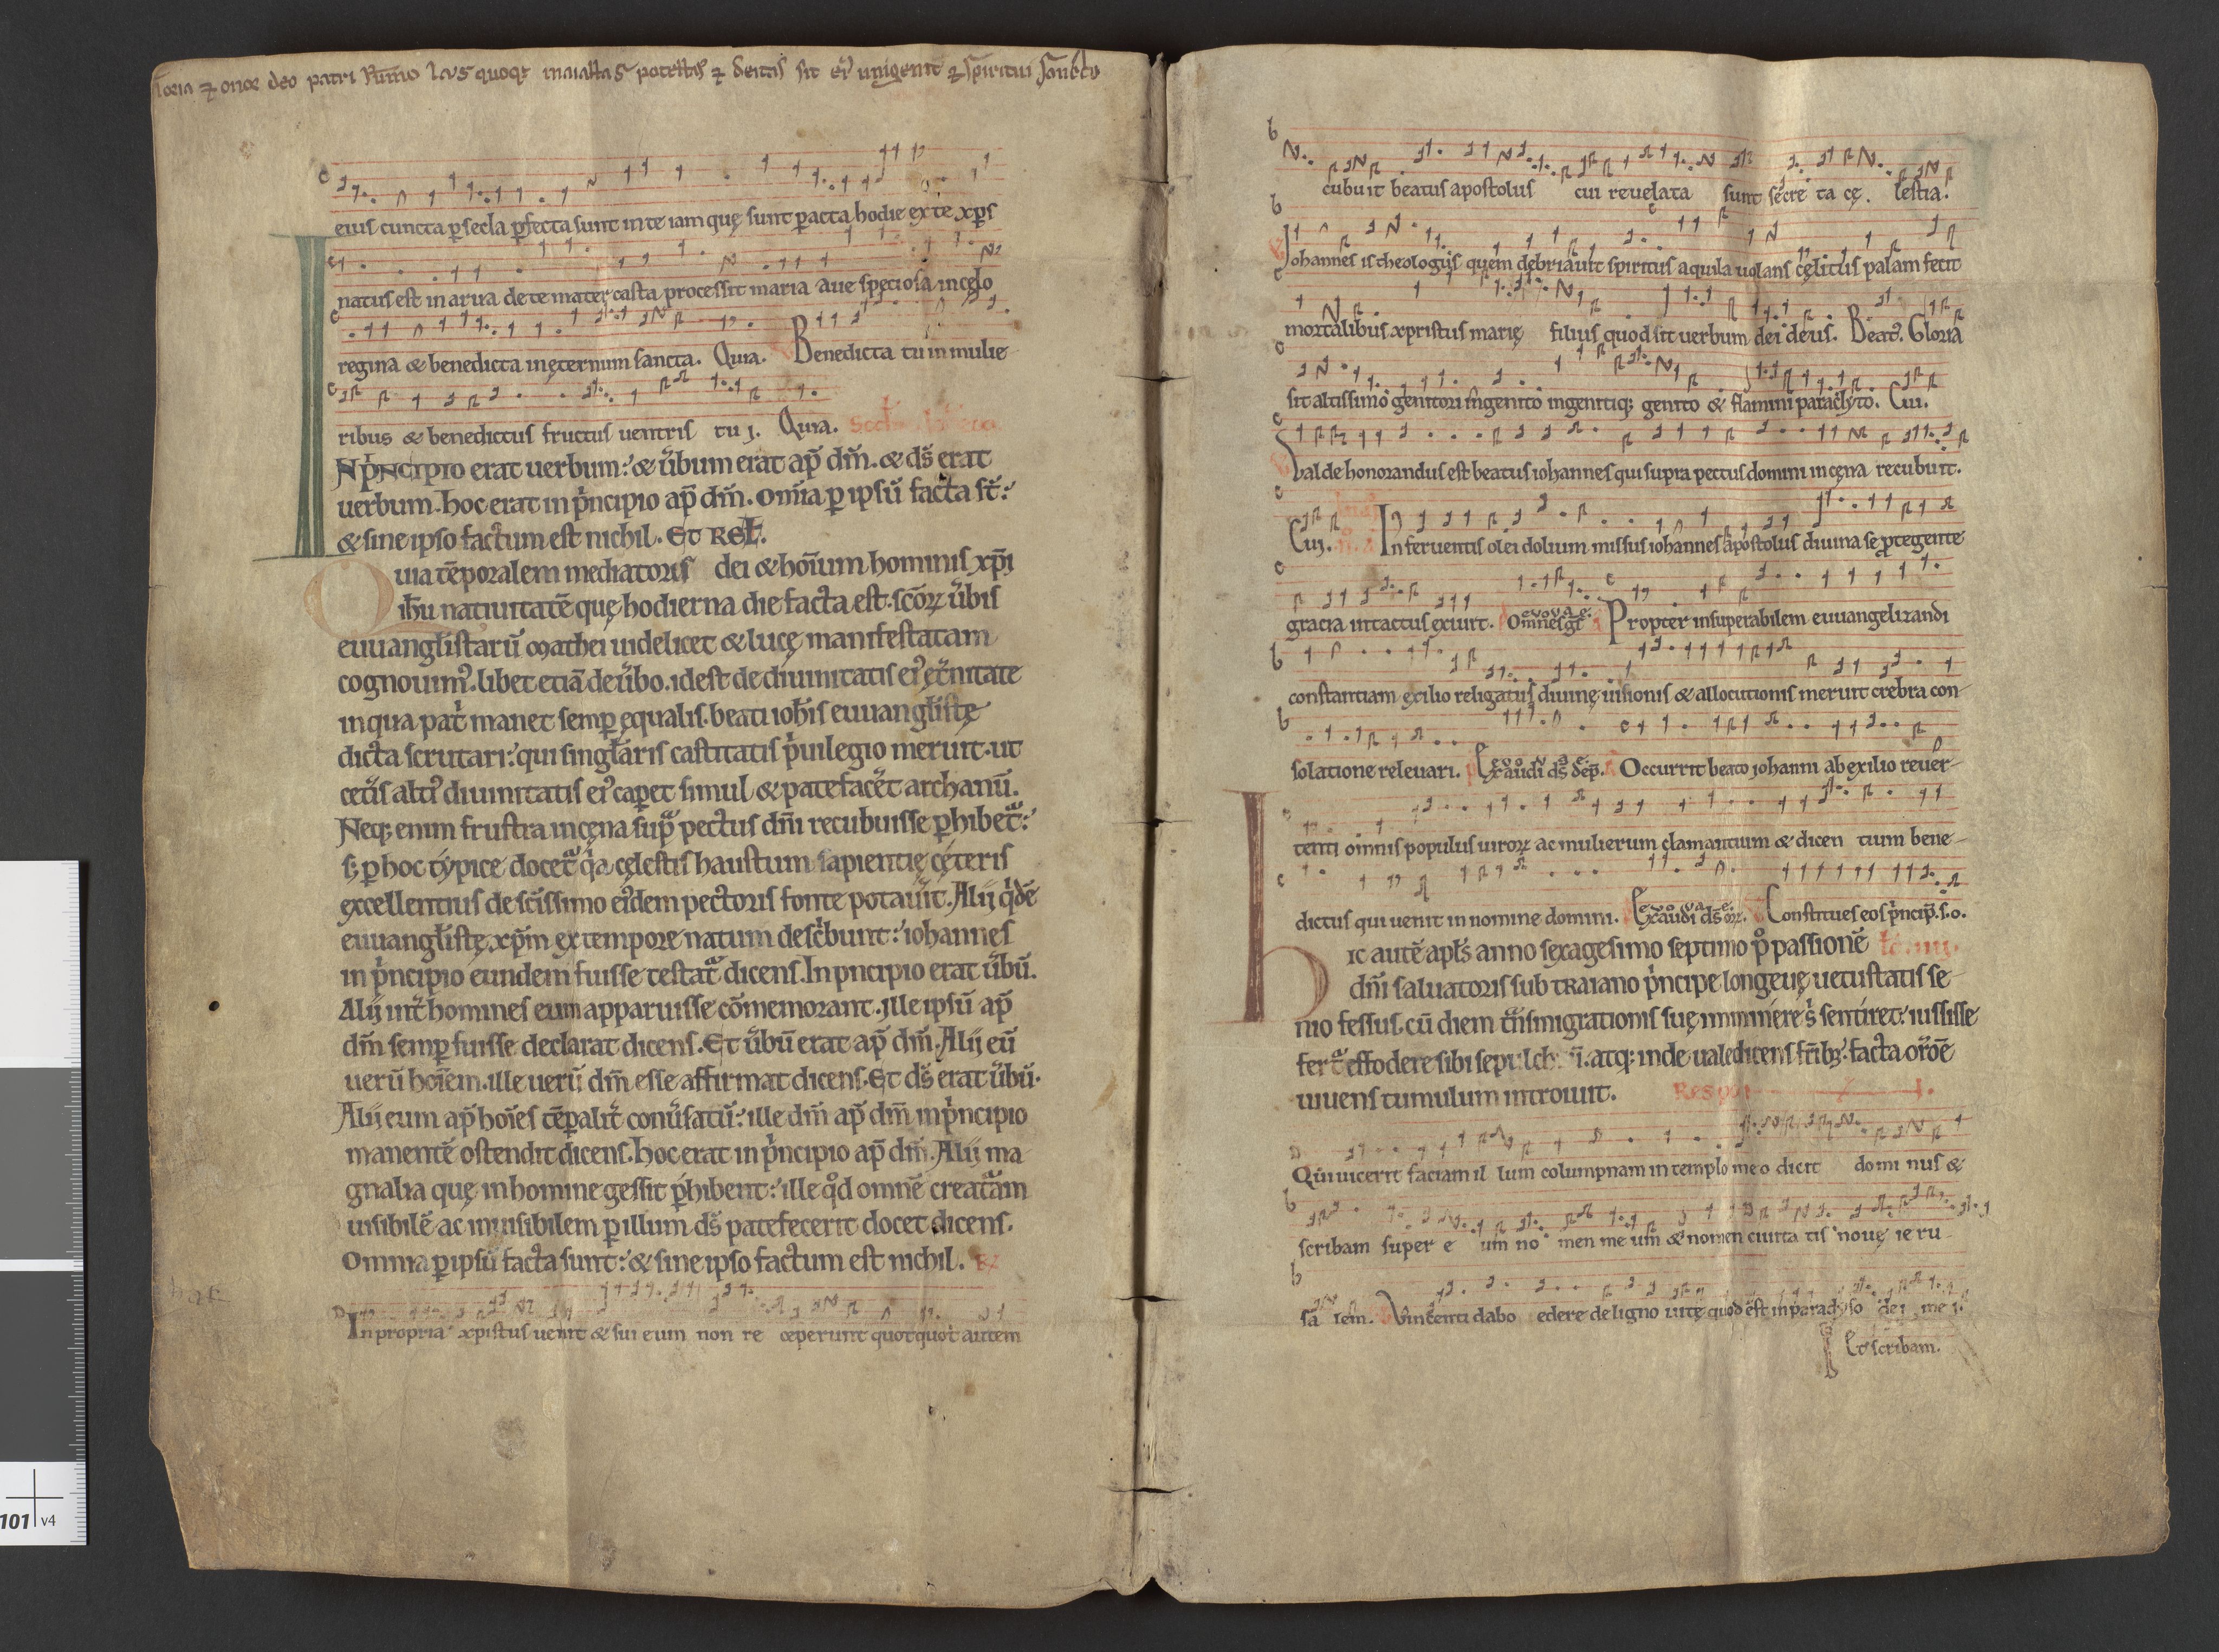 deo patri laus quoqꝫ potestas ⁊ sit ei unigenit ⁊ spiritui sancto
eius cuncta ꝑ secla ꝑfecta sunt in te iam quę sunt ꝑacta hodie ex te xp̄s
natus est in arua de te mater casta processit maria aue speciosa in cęlo
regina & benedicta in ęternum sancta. Quia. Benedicta tu in mulie-
ribus & benedictus fructus uentris tu i. Quia.
IN pⁱNCIPIO erat uerbum: & ůbum erat ap̄ dm̄. & ds̄ erat
uerbum. hoc erat in pⁱncipio ap̄ dm̄. omīa ꝑ ipsū facta st̄:
& sine ipso factum est nichil. ET REL̄.
Quia tēporalem mediatoris dei & hoīum hominis xp̄i
ih̄u natiuitatē quę hodierna die facta est. scōꝝ ůbis
euuanglistarū mathei uidelicet & lucę manifestatam
cognouimꝰ. libet etiā de ůbo. idest de diuinitatis eiꝰ ęt̄nitate
in qua pat̄ manet semꝑ ęqualis. beati ioh̄is euuanglistę
dicta scrutari: qui singlaris castitatis pⁱuilegio meruit. ut
cet̄is altiꝰ diuinitatis eiꝰ caꝑet simul & patefacet archanū.
Neqꝫ enim frustra in cęna supᵃ pectus dn̄i recubuisse ꝑhibet᷑:
sꝫ ꝑ hoc typice docet᷑ qⁱa cęlestis haustum sapientię cęteris
excellentius de scissimo eiꝰdem pectoris fonte potauit. Alij qⁱdē
euuanglistę xp̄m ex tempore natum descⁱbunt: iohannes
in pⁱncipio eundem fuisse testat᷑ dicens. In pncipio erat ůbū.
Alij int̄ homines eum apparuisse cōmemorant. ille ipsū ap̄
dm̄ semꝑ fuisse declarat dicens. Et ůbū erat ap̄ dm̄. Alij eū
uerū hoīem. ille uerū dm̄ esse affirmat dicens. Et ds̄ erat ůbū.
Alij eum ap̄ hoīes tēꝑalit̄ conůsatū: ille dm̄ ap̄ dm̄ in pⁱncipio
manentē ostendit dicens. hoc erat in pⁱncipio ap̄ dm̄. Alij ma
gnalia quę in homine gessit ꝑhibent: ille qd̊ omnē creatᵃam
uisibilē ac inuisibilem ꝑ illum ds̄ patefecerit docet dicens.
Omnia ꝑ ipsū facta sunt: & sine ipso factum est nichil. ꝶ
In propria xpistus uenit & sui eum non re ceperunt quotquot autem
cubuit beatus apostolus cui reuelata sunt secre ta cę. lestia.
Iohannes is theologus quem debriauit spiritus aquila uolans cęlitus palam fecit
mortalibus xpristus marię filius quod sit uerbum dei deus. Beatꝰ. Gloria
sit altissimo genitori ingenito ingenitiqꝫ genito & flamini paraclyto. Cui.
Valde honorandus est beatus iohannes qui supra pectus domini in cęna recubuit.
Cui. In feruentis olei dolium missus iohannes apostolus diuina se ꝓtegente
gracia intactus exiuit. evovae. Omnes gē. Propter insuperabilem euuangelizandi
constantiam exilio religatus diuinę uisionis & allocutionis meruit crebra con-
solatione releuari. evovae. Exaudi ds̄ dep̄. Occurrit beato iohanni ab exilio reuer-
tenti omnis populus uiroꝝ ac mulierum clamantium & dicen tium bene-
dictus qui uenit in nomine domini. evovae. Exaudi ds̄ or̄. Constitues eos pⁱncip̄. s. o.
Hic autē apl̄s anno sexagesimo septimo p̊ passionē
dn̄i saluatoris sub TRAIANO pⁱncipe longeuę uetustatis se-
nio fessus. cū diem tᵃnsmigrationis suę imminere sⁱ sentiret: iussisse
fert᷑ effodere sibi sepulch i. atqꝫ inde ualedicens fr̄ibꝫ. facta or̄oē
uiuens tumulum introiuit.
Qui uicerit faciam il lum columpnam in templo meo dicit domi nus &
scribam super e um no men me um & nomen ciuita tis nouę ieru-
sa lem. Vincenti dabo edere de ligno uitę quod est in paradyso dei me i.
Et scribam.